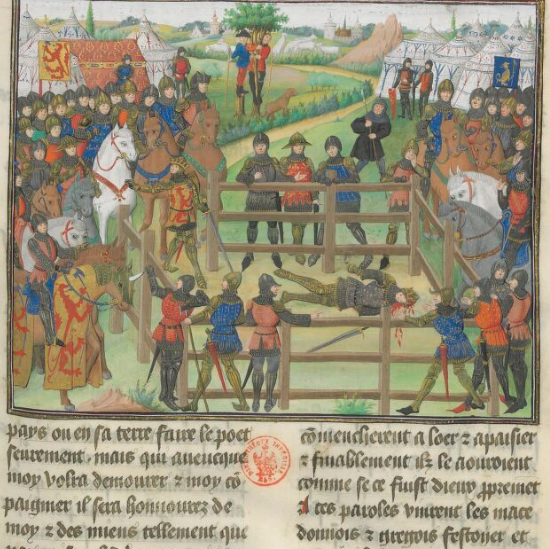 pays ou en sa terre faire le poet
seurement, mais qui auecque
moy voltra demourer ⁊ moy cō
paignier il sera honnourez de
moy ⁊ des miens tellement que
cōmencherent a loer ⁊ apaisier
⁊ finablement ilz le aouroient
comme se ce fust dieu
A ces paroles vinrent les mace
donnois ⁊ gregois festoyer et